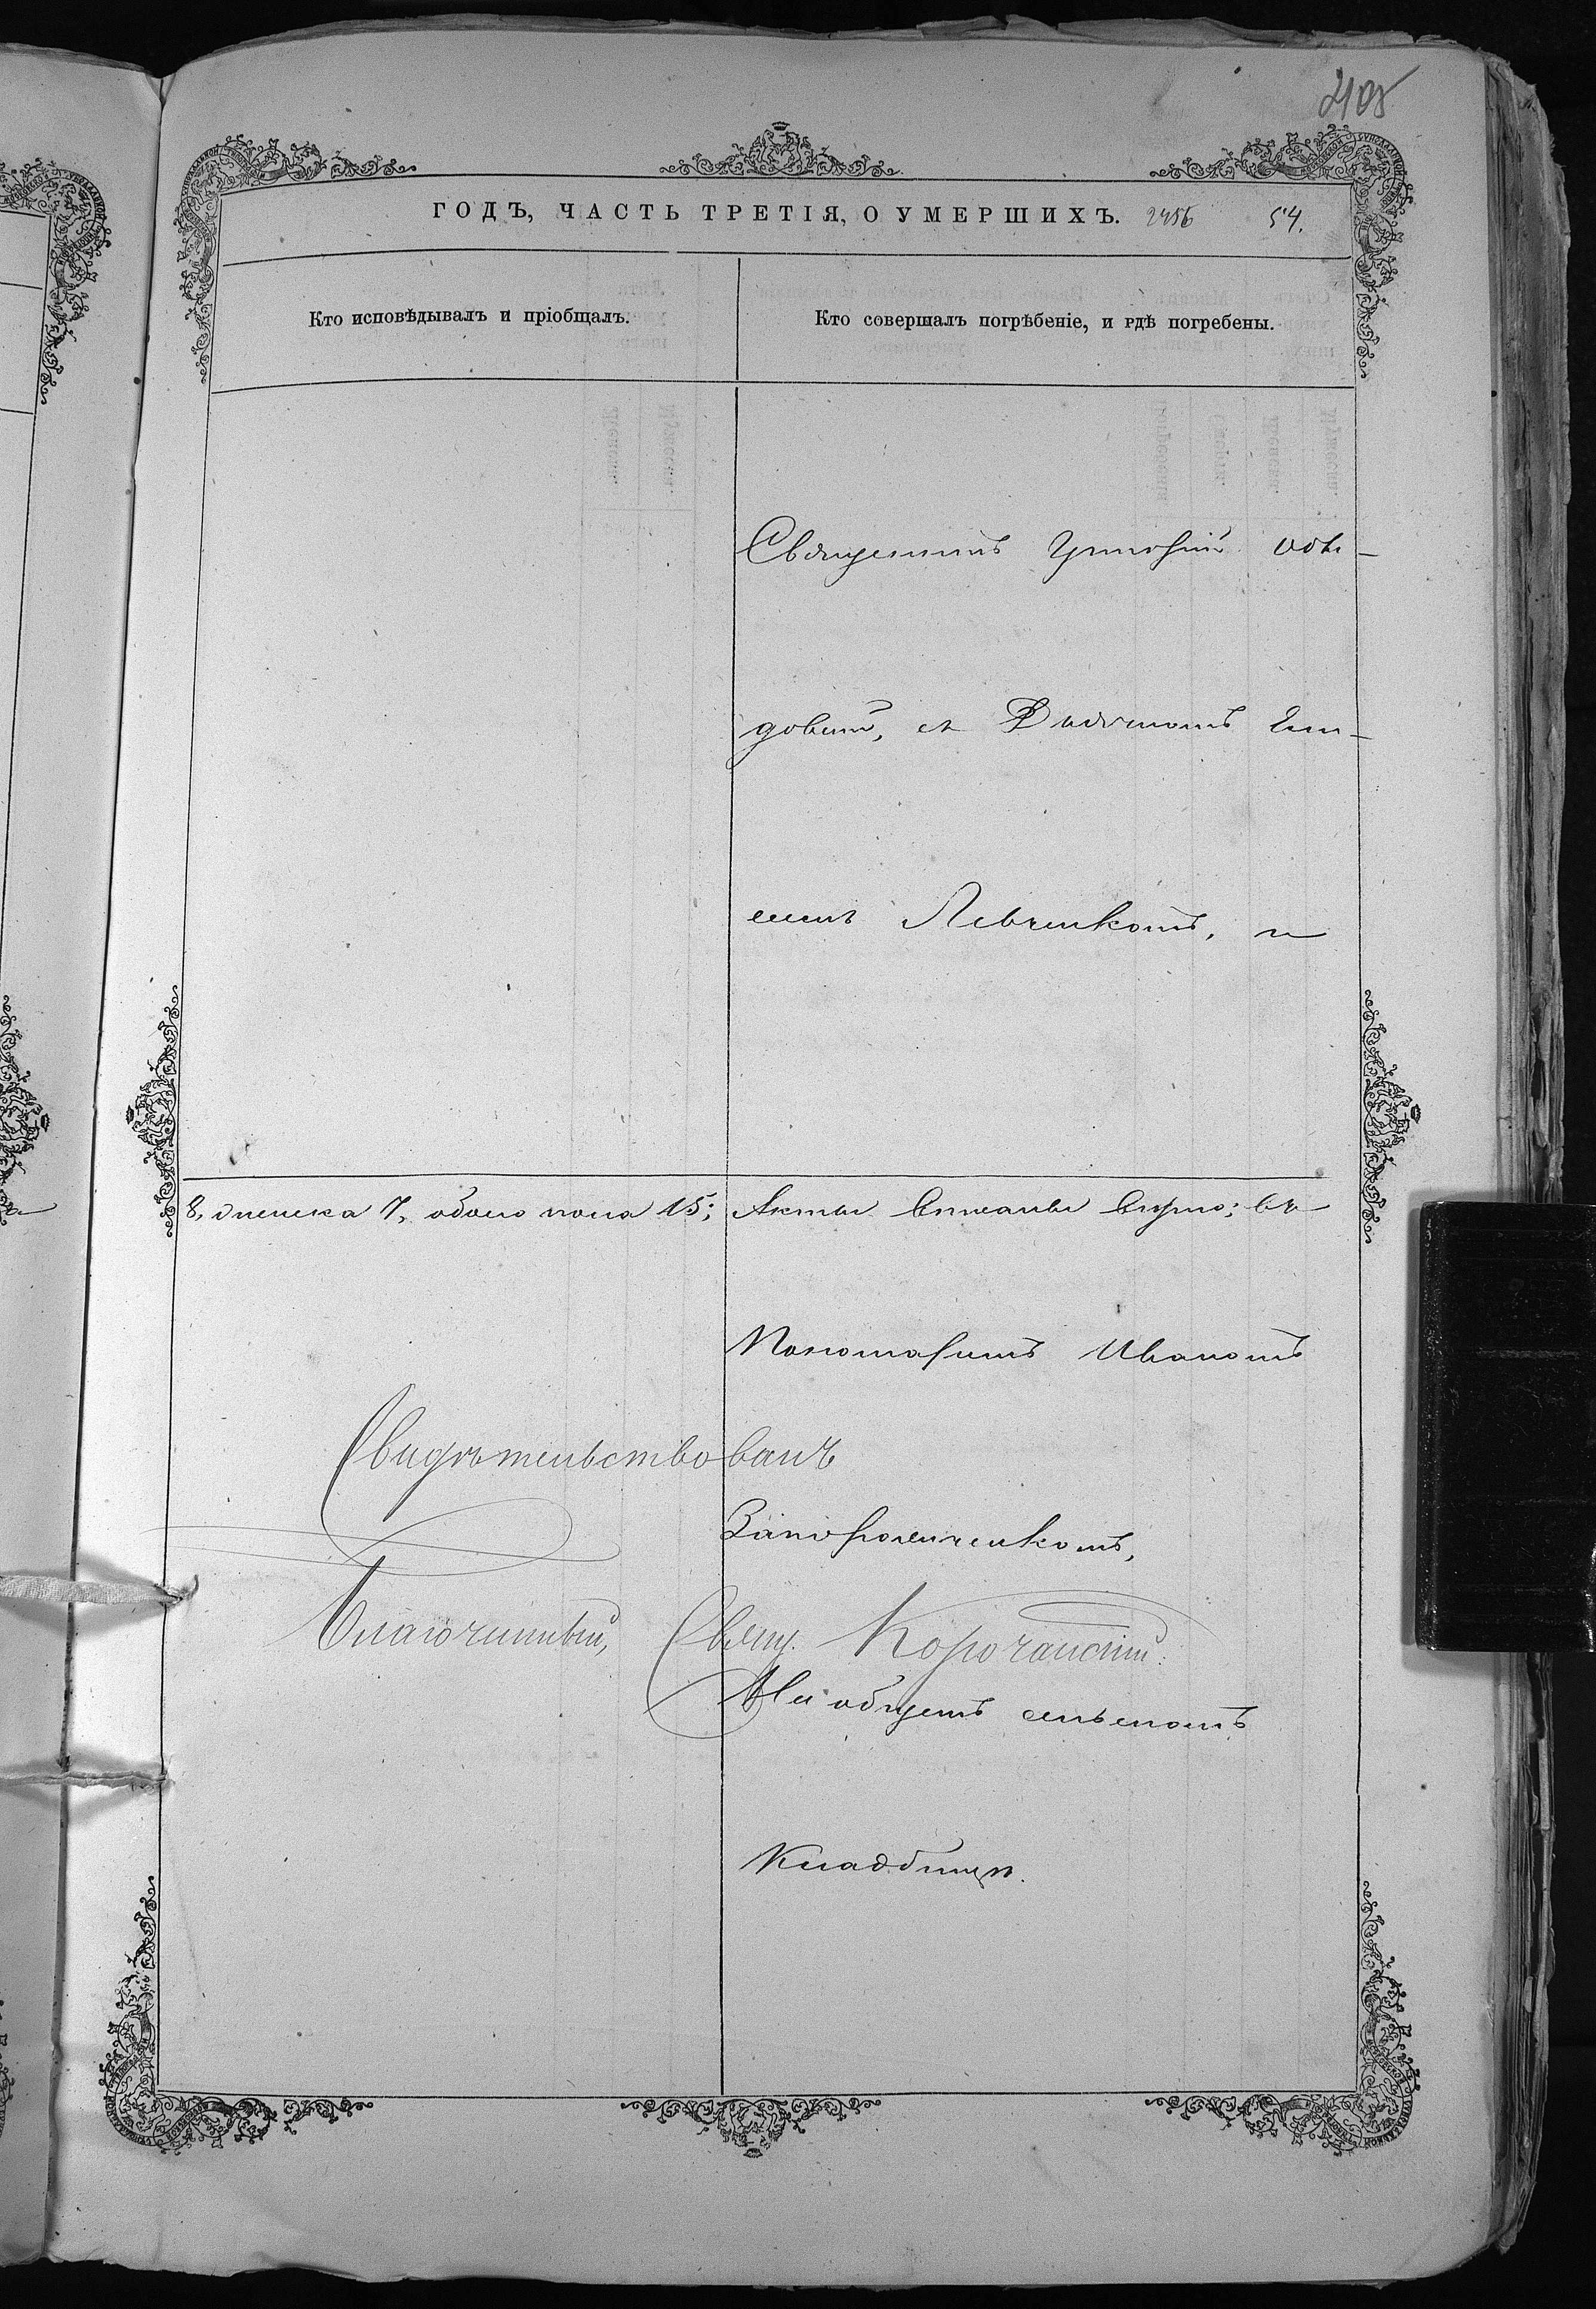 405
ГОДЪ, ЧАСТЬ ТРЕТІЯ, О УМЕРШИХЪ. 2456 54.
Кто исповѣдывалъ и пріобщалъ.
Кто совершалъ погрѣбеніе, и гдѣ погребены.
Священникъ Григорій
довскій, съ Дьячкомъ Ем-
Левченкомъ, и
8, женска 7, обоего пола 15; Акты вписаны вѣрно; въ
Пономаремъ Иваномъ
Свидѣтельствовалъ
Запорожченкомъ,
Благочинный, Свящ. Корочанскій.
На общемъ сельскомъ
Кладбищѣ.